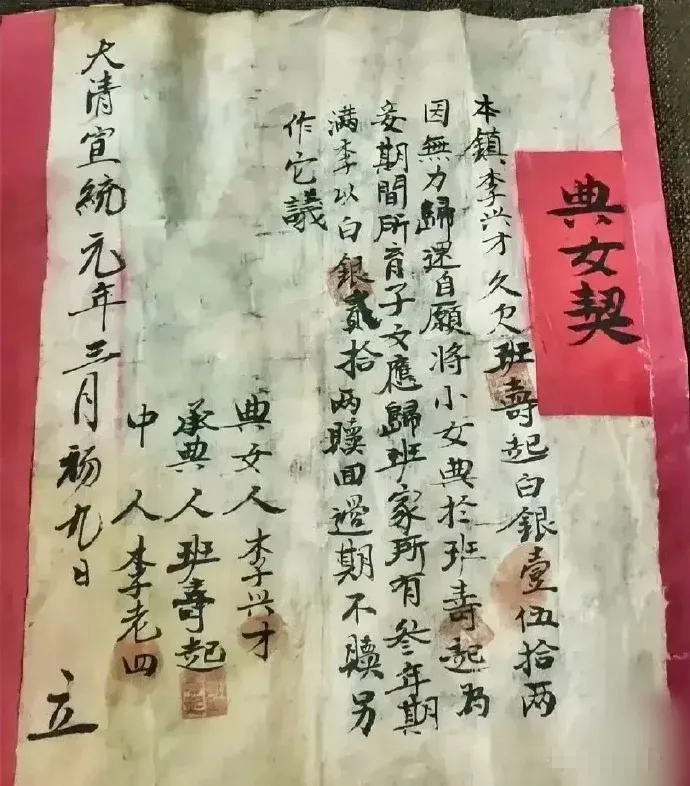 典女契
本鎮李兴才久欠班壽起白銀壹伍拾两
因無力歸还自願将小女典於班壽起为
妾期間所育子女應歸班家所有叁年期
满李以白銀貳拾两贖回過期不贖另
作它議
典女人李兴才
承典人班壽起
中人李老四
大清宣統元年三月初九日
立